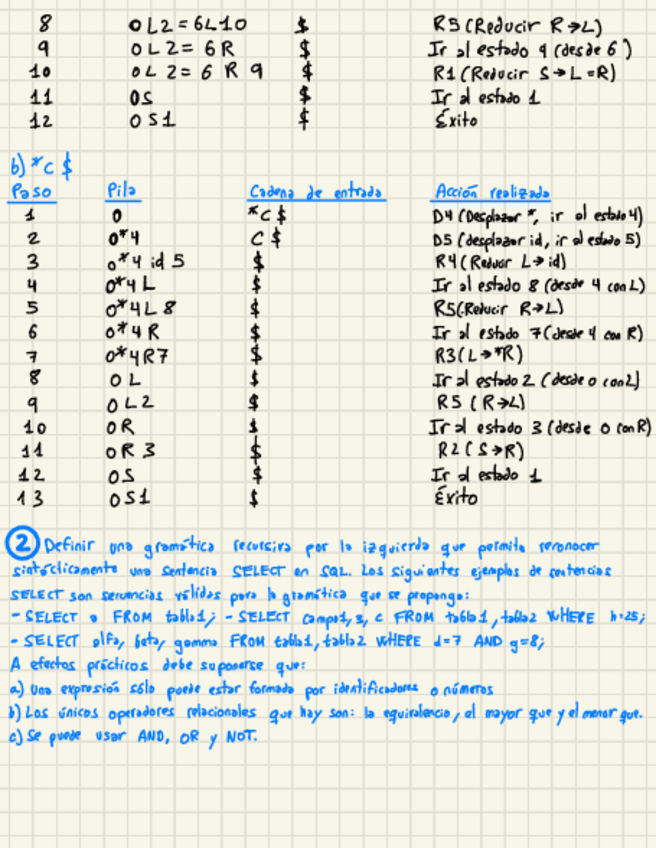 8 0L2=6L10 $ R5(Reducir R→L)
9 0L2=6R $ Ir al estado 9 (desde 6)
10 0L2=6R9 $ R1(Reducir S→L=R)
11 0S $ Ir al estado 1
12 0S1 $ Éxito
b) *C $
Paso Pila Cadena de entrada Acción realizada
1 0 *C$ D4 (Desplazar *, ir al estado 4)
2 0*4 C$ D5 (desplazar id, ir al estado 5)
3 0*4 id 5 $ R4(Reducir L→id)
4 0*4L $ Ir al estado 8 (desde 4 con L)
5 0*4L8 $ R5(Reducir R→L)
6 0*4R $ Ir al estado 7(desde 4 con R)
7 0*4R7 $ R3(L→*R)
8 0L $ Ir al estado 2 (desde 0 con L)
9 0L2 $ R5 (R→L)
10 0R $ Ir al estado 3 (desde 0 con R)
11 0R3 $ R2(S→R)
12 0S $ Ir al estado 1
13 0S1 $ Éxito
2 Definir una gramática recursiva por la izquierda que permita reconocer
sintácticamente una sentencia SELECT en SQL. Los siguientes ejemplos de sentencias
SELECT son sentencias válidas para la gramática que se proponga:
- SELECT a FROM tabla1; - SELECT campo1, 3, c FROM tabla1, tabla2 WHERE h=25;
- SELECT alfa, beta, gamma FROM tabla1, tabla2 WHERE d=7 AND g=8;
A efectos prácticos debe suponerse que:
a) Una expresión sólo puede estar formada por identificadores o números
b) Los únicos operadores relacionales que hay son: la equivalencia, el mayor que y el menor que.
c) Se puede usar AND, OR y NOT.